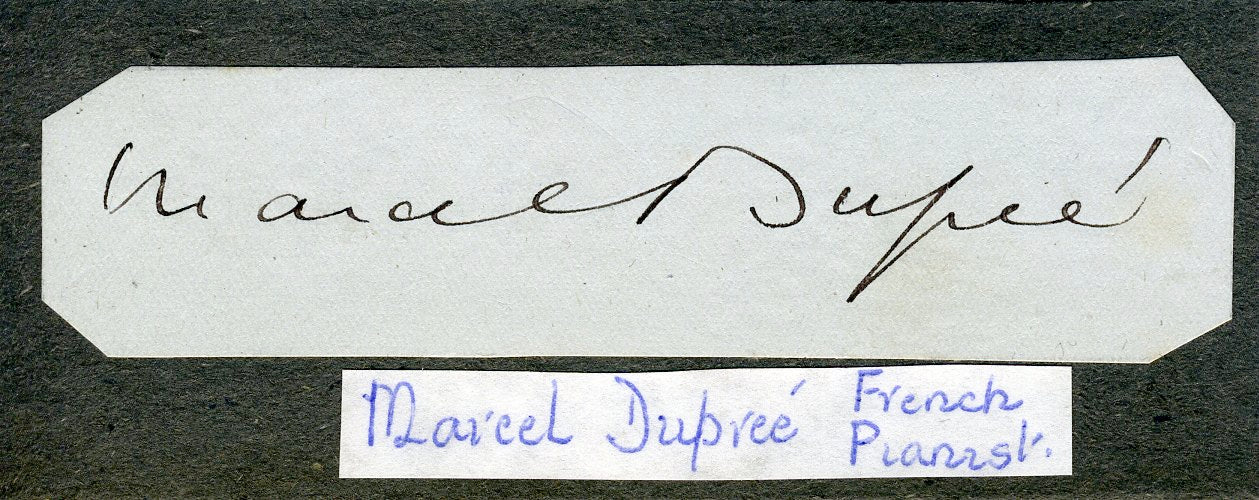 Marcel Dupré
Marcel Dupreé French
Pianist.